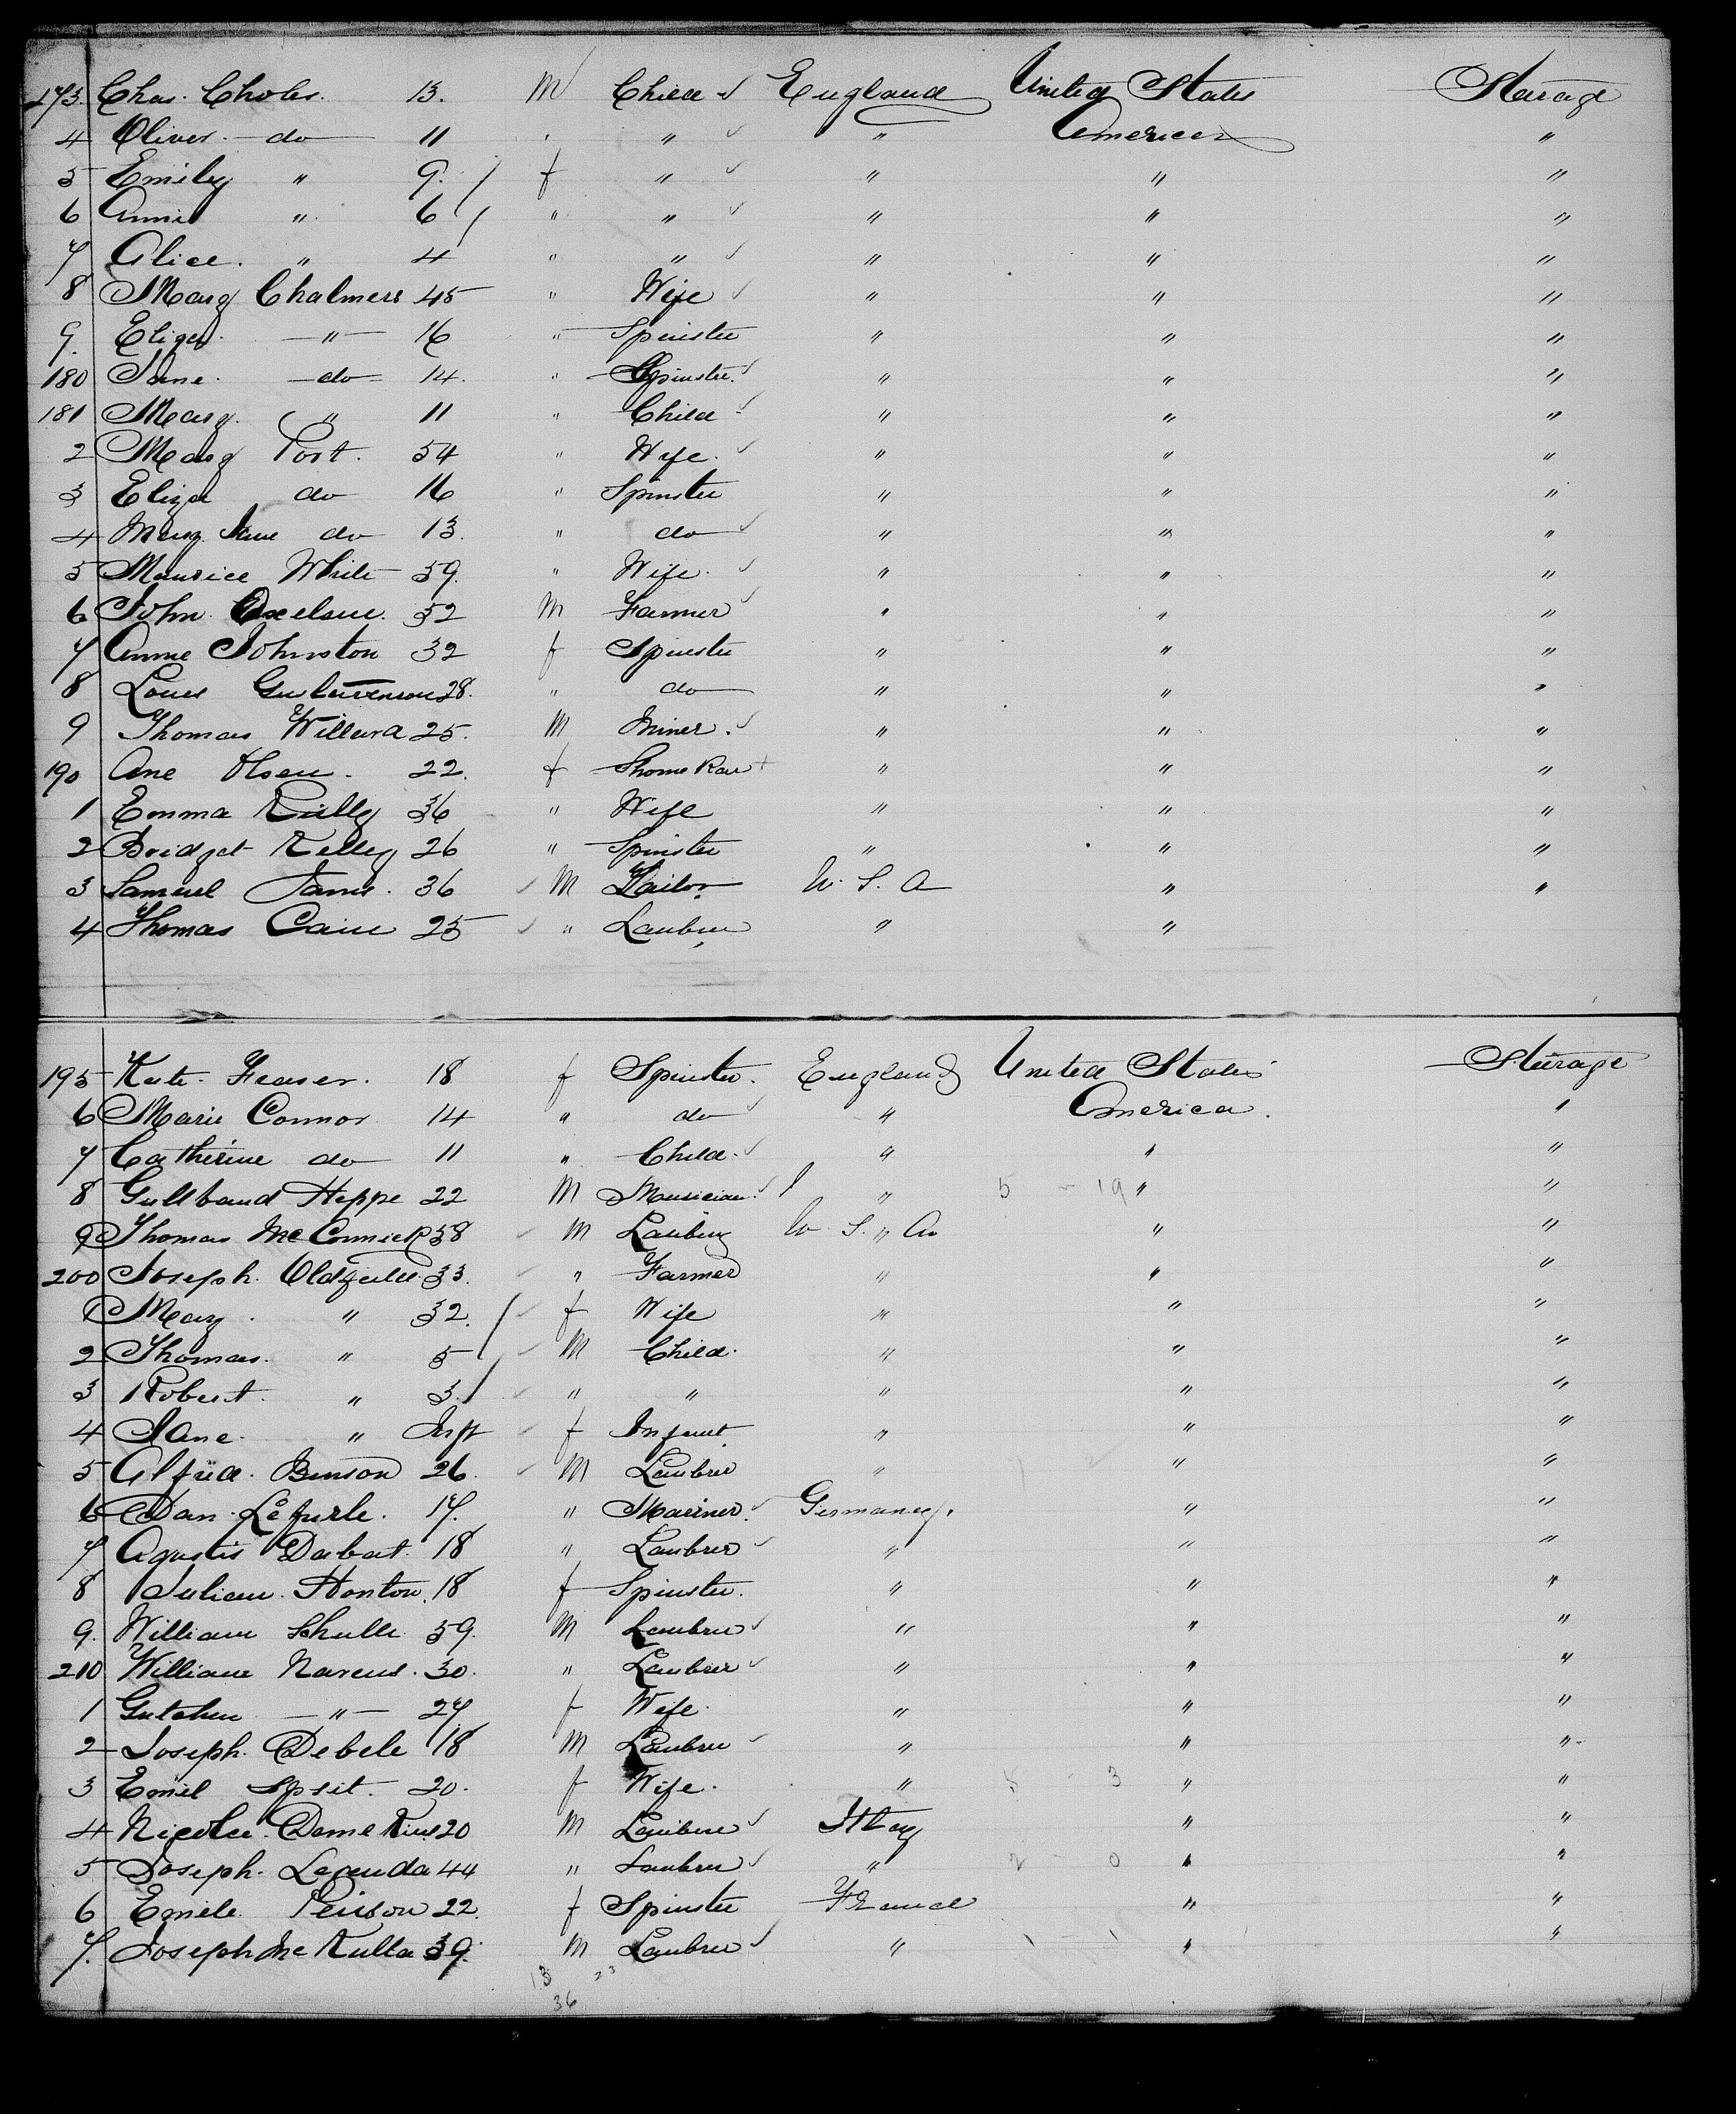 173 Chas. Choles. 13. M Child England United States Starage
4 Oliver. do 11 " " " America "
5 Emily " 9. f " " " "
6 Annie " 6 " " " " "
7 Alice. " 4 " " " " "
8 Mary Chalmers 45 " Wife " " "
9. Eliza. " 16 " Spinster " " "
180 Jane. do 14. " Spinster. " " "
181 Mary. " 11 " Child " " "
2 Mary Post. 54 " Wife. " " "
3 Eliza do 16 " Spinster " " "
4 Mary Jane do 13. " do " " "
5 Maurice White 39. " Wife. " " "
6 John 32 M Farmer " " "
7 Anne Johnston 32 f Spinster " " "
8 Louis 28. " do " " "
9 Thomas Willard 25. M Miner. " " "
190 Ane Olsen. 22. f " " "
1 Emma Reilly 36 " Wife " " "
2 Bridget Kelley 26 " Spinster " " "
3 Samuel James. 36 M Tailor U. S. A " "
4 Thomas Cain 25 " Laubrer " "
195 Kate. Fraser. 18 f Spinster. England United States Steirage
6 Marie Connor 14 " do " America. "
7 Catherine do 11 " Child. " " "
8 Heppe 22 M Musician. " 5 - 19 " "
9 Thomas McCormick 38 M Laubrer U. S. " A " "
200 Joseph. 33. " Farmer " " "
1 Mary. " 32. f Wife " " "
2 Thomas. " 5 M Child. " " "
3 Robert. " 3. " " " " "
4 Jane. " Inft f Infant " " "
5 Alfred. Benson 26. M Laubrer " " "
6 Dan. 17. " Mariner. Germaney. " "
7 Dabat. 18 " Laubrer " " "
8 Honton. 18 f Spinster. " " "
9. William Schulle 39. M Laubrer " " "
210 William Nareus. 30. " Laubrer " " "
1 " 27 f Wife. " " "
2 Joseph. Debele 18 M Laubrer " " "
3 Emil Spsit. 20. f Wife. " 5 - 3 " "
4 20 M Laubrer Ittaey " "
5 Joseph. 44 " Laubrer " 2 - 0 " "
6 Emele. Peirson 22. f Spinster France " "
7. Joseph McKulla 39. M Laubrer " 1 - 1 " "
13 23
36